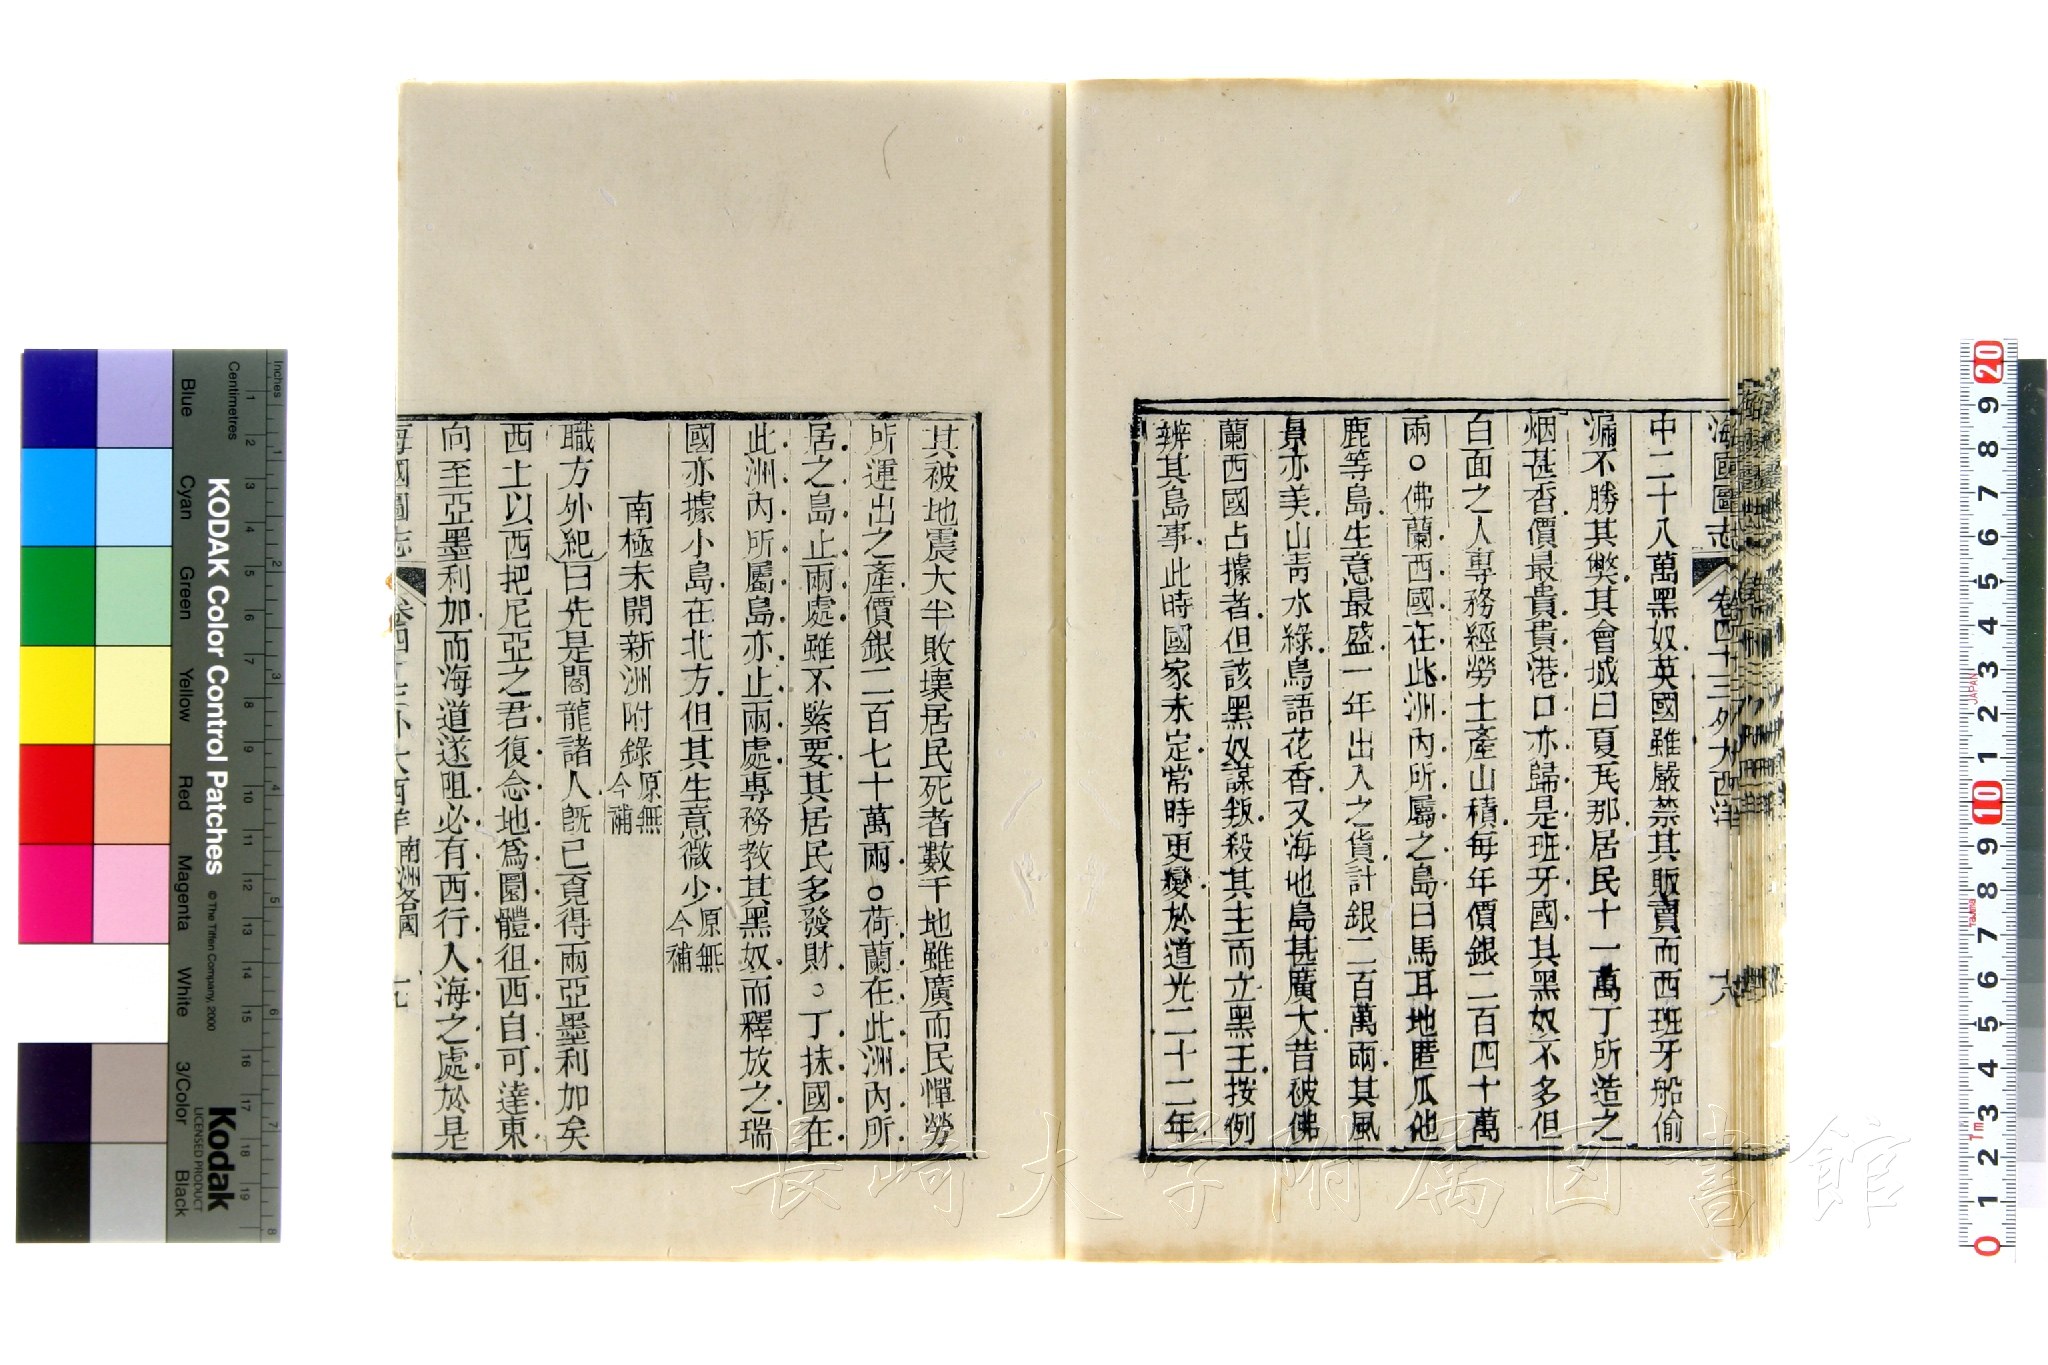 海國圖志 卷四十三 外大西洋 十六
中二十八萬黑奴英國雖嚴禁其販賣而西班牙船偷
漏不勝其弊其會城曰夏瓦那居民十一萬丁所造之
烟甚香價最貴貴港口亦歸是班牙國其黑奴不多但
白面之人專務經勞土產山積每年價銀二百四十萬
兩○佛蘭西國在此洲內所屬之島曰馬耳地匿瓜他
鹿等島生意最盛一年出入之貨計銀二百萬兩其風
景亦美山靑水綠鳥語花香又海地島甚廣大昔被佛
蘭西國占據者但該黑奴謀叛殺其主而立黑王按例
辨其島事此時國家未定常時更變於道光二十二年
其被地震大半敗壞居民死者數千地雖廣而民憚勞
所運出之產價銀二百七十萬兩○荷蘭在此洲內所
居之島止兩處雖不緊要其居民多發財○丁抹國在
此洲內所屬島亦止兩處專務教其黑奴而釋放之瑞
國亦據小島在北方但其生意微少原無今補
南極未開新洲附錄原無今補
職方外紀曰先是閣龍諸人旣已覓得兩亞墨利加矣
西土以西把尼亞之君復念地爲圜體徂西自可達東
向至亞墨利加而海道遂阻必有西行人海之處於是
海國圖志 卷四十三 外大西洋 南洲各國 十七
KODAK Color Control Patches
© The Tiffen Company, 2000
Kodak
LICENSED PRODUCT
Inches
Centimetres
Blue
Cyan
Green
Yellow
Red
Magenta
White
3/Color
Black
長崎大学附属図書館